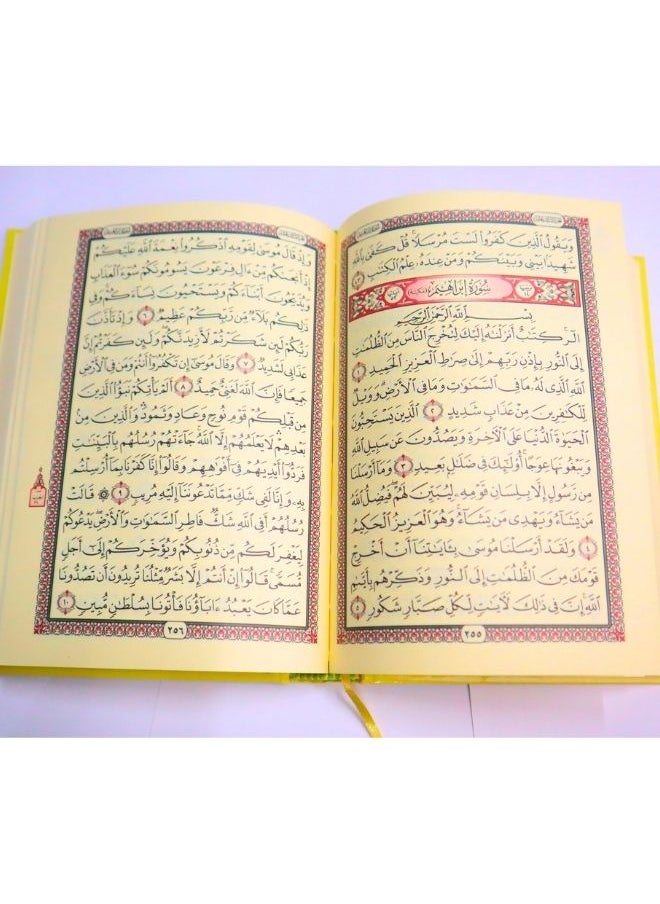 وَيَقُولُ الَّذِينَ كَفَرُوا لَسْتَ مُرْسَلًا قُلْ كَفَىٰ بِاللَّهِ
شَهِيدًا بَيْنِي وَبَيْنَكُمْ وَمَنْ عِندَهُ عِلْمُ الْكِتَابِ
سُورَةُ إِبْرَاهِيمَ
بِسْمِ اللَّهِ الرَّحْمَٰنِ الرَّحِيمِ
الٓر كِتَابٌ أَنزَلْنَاهُ إِلَيْكَ لِتُخْرِجَ النَّاسَ مِنَ الظُّلُمَاتِ
إِلَى النُّورِ بِإِذْنِ رَبِّهِمْ إِلَىٰ صِرَاطِ الْعَزِيزِ الْحَمِيدِ ١
اللَّهِ الَّذِي لَهُ مَا فِي السَّمَاوَاتِ وَمَا فِي الْأَرْضِ وَوَيْلٌ
لِّلْكَافِرِينَ مِنْ عَذَابٍ شَدِيدٍ ٢ الَّذِينَ يَسْتَحِبُّونَ
الْحَيَاةَ الدُّنْيَا عَلَى الْآخِرَةِ وَيَصُدُّونَ عَن سَبِيلِ اللَّهِ
وَيَبْغُونَهَا عِوَجًا أُولَٰئِكَ فِي ضَلَالٍ بَعِيدٍ ٣ وَمَا أَرْسَلْنَا
مِن رَّسُولٍ إِلَّا بِلِسَانِ قَوْمِهِ لِيُبَيِّنَ لَهُمْ فَيُضِلُّ اللَّهُ
مَن يَشَاءُ وَيَهْدِي مَن يَشَاءُ وَهُوَ الْعَزِيزُ الْحَكِيمُ
٤ وَلَقَدْ أَرْسَلْنَا مُوسَىٰ بِآيَاتِنَا أَنْ أَخْرِجْ
قَوْمَكَ مِنَ الظُّلُمَاتِ إِلَى النُّورِ وَذَكِّرْهُم بِأَيَّامِ
اللَّهِ إِنَّ فِي ذَٰلِكَ لَآيَاتٍ لِّكُلِّ صَبَّارٍ شَكُورٍ ٥
٢٥٥
وَإِذْ قَالَ مُوسَىٰ لِقَوْمِهِ اذْكُرُوا نِعْمَةَ اللَّهِ عَلَيْكُمْ
إِذْ أَنجَاكُم مِّنْ آلِ فِرْعَوْنَ يَسُومُونَكُمْ سُوءَ الْعَذَابِ
وَيُذَبِّحُونَ أَبْنَاءَكُمْ وَيَسْتَحْيُونَ نِسَاءَكُمْ وَفِي
ذَٰلِكُم بَلَاءٌ مِّن رَّبِّكُمْ عَظِيمٌ ٦ وَإِذْ تَأَذَّنَ
رَبُّكُمْ لَئِن شَكَرْتُمْ لَأَزِيدَنَّكُمْ وَلَئِن كَفَرْتُمْ إِنَّ
عَذَابِي لَشَدِيدٌ ٧ وَقَالَ مُوسَىٰ إِن تَكْفُرُوا أَنتُمْ وَمَن فِي الْأَرْضِ
جَمِيعًا فَإِنَّ اللَّهَ لَغَنِيٌّ حَمِيدٌ ٨ أَلَمْ يَأْتِكُمْ نَبَأُ الَّذِينَ
مِن قَبْلِكُمْ قَوْمِ نُوحٍ وَعَادٍ وَثَمُودَ وَالَّذِينَ مِن
بَعْدِهِمْ لَا يَعْلَمُهُمْ إِلَّا اللَّهُ جَاءَتْهُمْ رُسُلُهُم بِالْبَيِّنَاتِ
فَرَدُّوا أَيْدِيَهُمْ فِي أَفْوَاهِهِمْ وَقَالُوا إِنَّا كَفَرْنَا بِمَا أُرْسِلْتُم
بِهِ وَإِنَّا لَفِي شَكٍّ مِّمَّا تَدْعُونَنَا إِلَيْهِ مُرِيبٍ ٩ ۞ قَالَتْ
رُسُلُهُمْ أَفِي اللَّهِ شَكٌّ فَاطِرِ السَّمَاوَاتِ وَالْأَرْضِ يَدْعُوكُمْ
لِيَغْفِرَ لَكُم مِّن ذُنُوبِكُمْ وَيُؤَخِّرَكُمْ إِلَىٰ أَجَلٍ
مُّسَمًّى قَالُوا إِنْ أَنتُمْ إِلَّا بَشَرٌ مِّثْلُنَا تُرِيدُونَ أَن تَصُدُّونَا
عَمَّا كَانَ يَعْبُدُ آبَاؤُنَا فَأْتُونَا بِسُلْطَانٍ مُّبِينٍ ١٠
٢٥٦